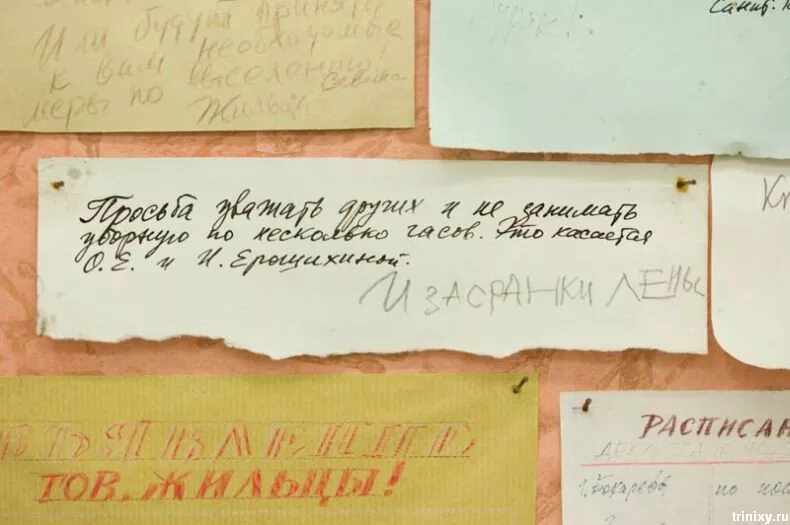 Или будут приняты
необходимые
к вам
меры по выселению
Жильцы
Санит.
Просьба уважать других и не занимать
уборную по несколько часов. Это касается
О.Е. и Н. Ерошихиной.
И ЗАСРАНКИ ЛЕНЫ
ТОВ. ЖИЛЬЦЫ!
РАСПИСАН
по
trinixy.ru